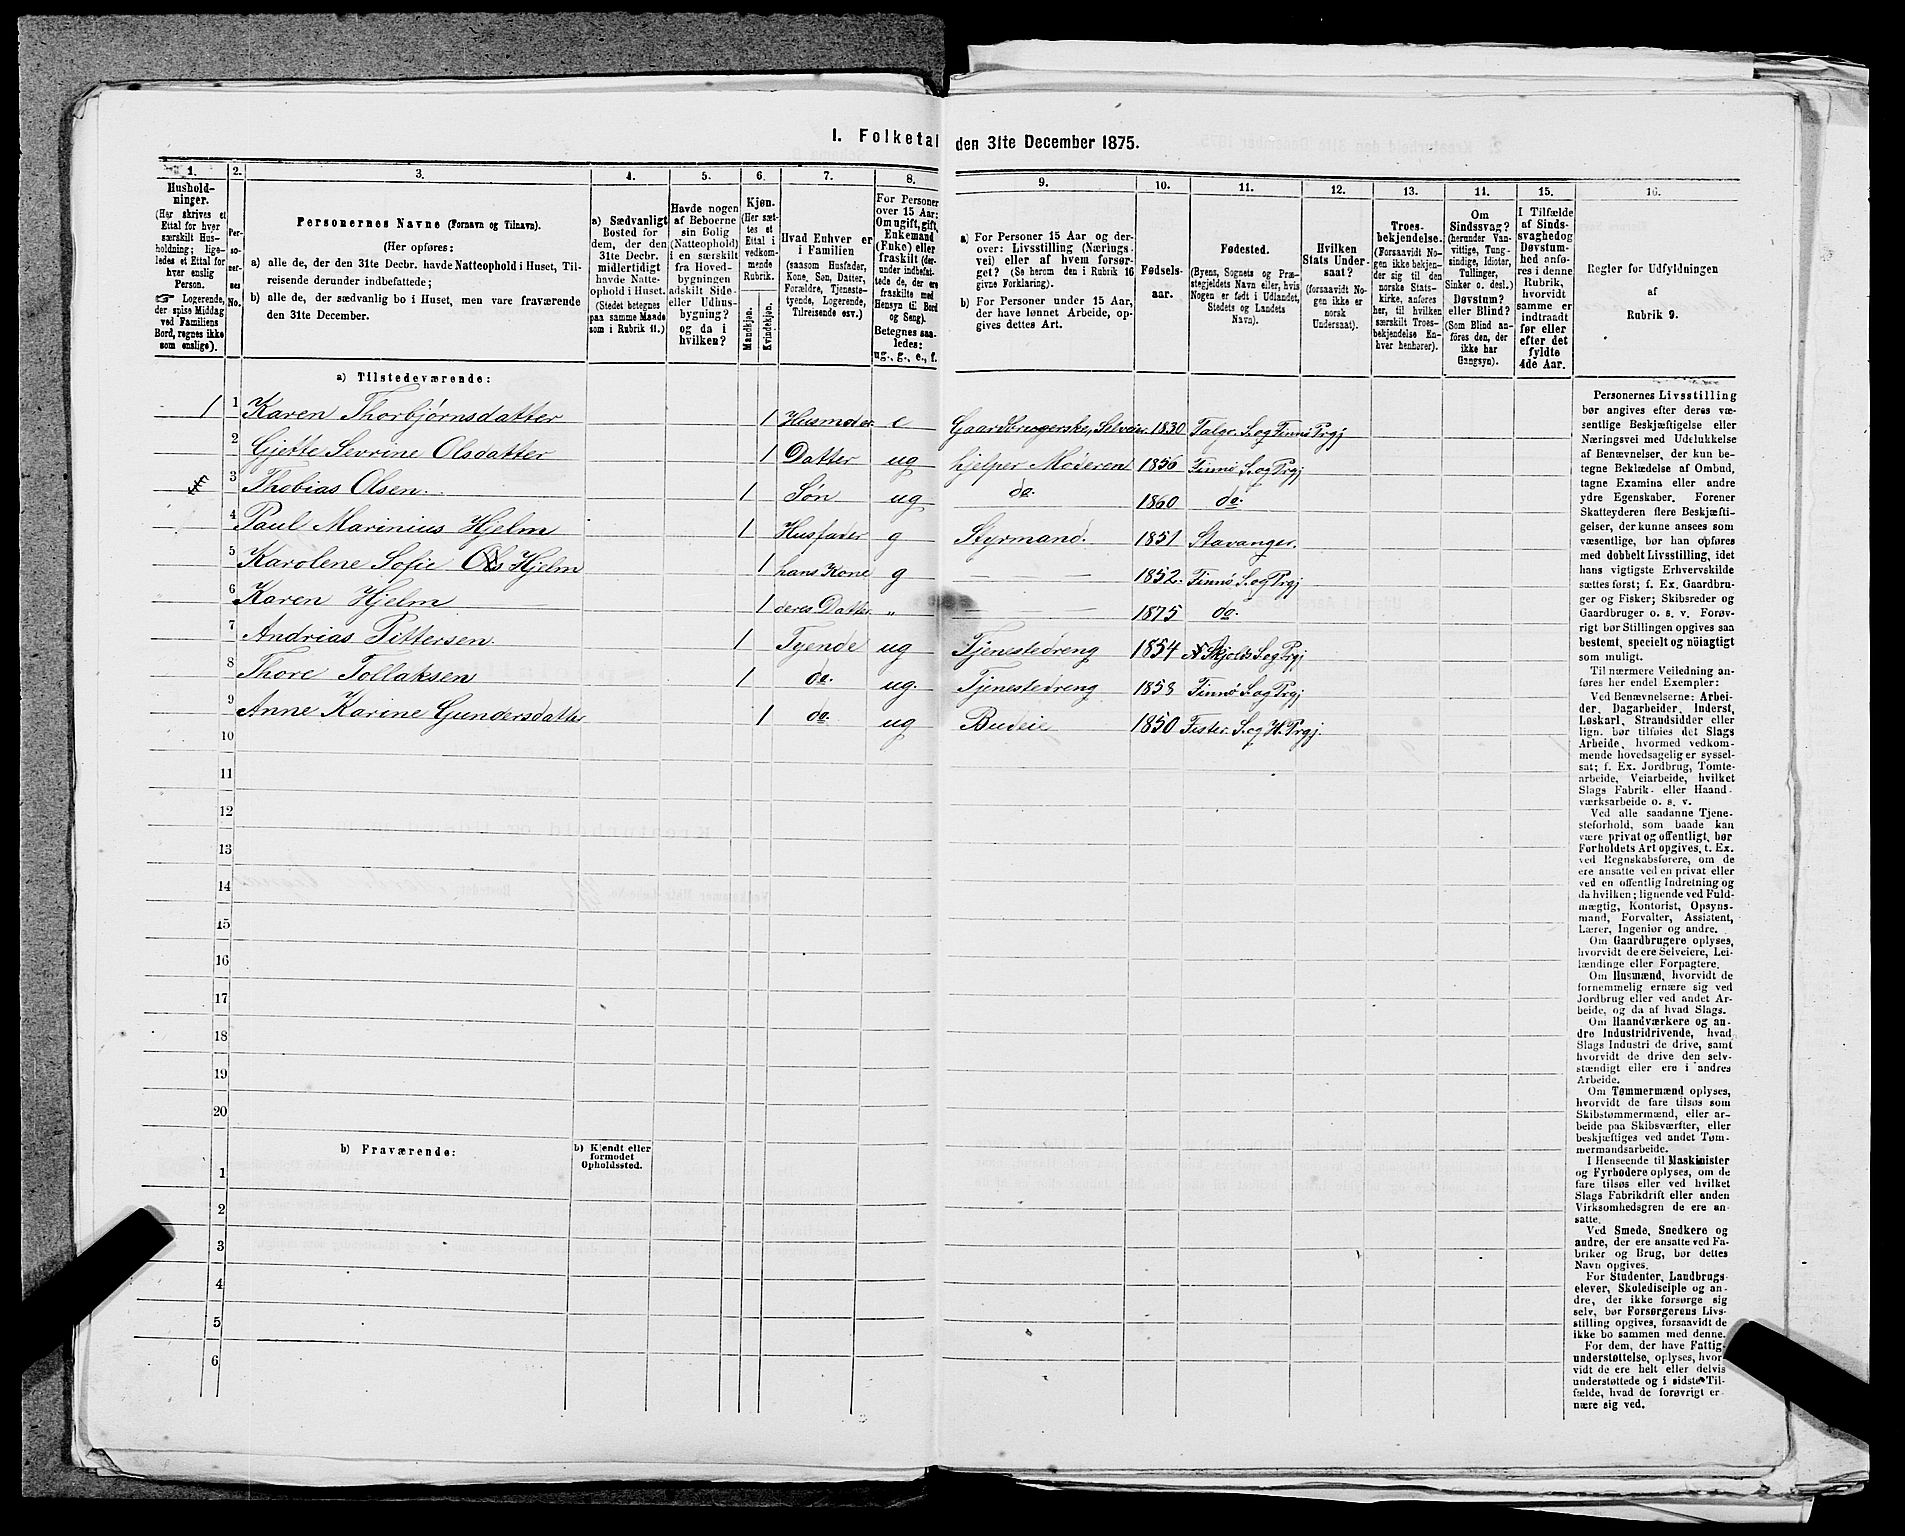 I. Folketal den 31te December 1875.
1.
Hushold-
ninger.
(Her skrives et
Ettal for hver
særskilt Hus-
holdning; lige-
ledes et Ettal for
hver enslig
Person.
☞ Logerende,
der spise Middag
ved Familiens
Bord, regnes ikke
som enslige).
2.
Per-
so-
ner-
nes
No.
3.
Personernes Navne (Fornavn og Tilnavn).
(Her opføres:
a) alle de, der den 31te Decbr. havde Natteophold i Huset, Til-
reisende derunder indbefattede;
b) alle de, der sædvanlig bo i Huset, men vare fraværende
den 31te December.
4.
a) Sædvanligt
Bosted for
dem, der den
31te Decbr.
midlertidigt
havde Natte-
ophold i Huset.
(Stedet betegnes
paa samme Maade
som i Rubrik 11.)
5.
Havde nogen
af Beboerne
sin Bolig
(Natteophold)
i en særskilt
fra Hoved-
bygningen
adskilt Side-
eller Udhus-
bygning?
og da i
hvilken?
6.
Kjøn.
(Her sæt-
tes et
Ettal i
vedkom-
mende
Rubrik.
Mandkjøn.
Kvindekjøn.
7.
Hvad Enhver er
i Familien
(saasom Husfader,
Kone, Søn, Datter,
Forældre, Tjeneste-
tyende, Logerende,
Tilreisende osv.)
8.
For Personer
over 15 Aar:
Om ugift, gift,
Enkemand
(Enke) eller
fraskilt (der-
under indbefat-
tede de, der ere
fraskilte med
Hensyn til Bord
og Seng).
Betegnes saa-
ledes:
ug., g., e., f.
9.
a) For Personer 15 Aar og der-
over: Livsstilling (Nærings-
vei) eller af hvem forsør-
get? (Se herom den i Rubrik 16
givne Forklaring).
b) For Personer under 15 Aar,
der have lønnet Arbeide, op-
gives dettes Art.
10.
Fødsels-
aar.
11.
Fødested.
(Byens, Sognets og Præ-
stegjeldets Navn eller, hvis
Nogen er født i Udlandet,
Stedets og Landets
Navn).
12.
Hvilken
Stats Under-
saat?
(forsaavidt No-
gen ikke er
norsk
Undersaat).
13.
Troes-
bekjendelse.
(Forsaavidt No-
gen ikke bekjen-
der sig til den
norske Stats-
kirke, anføres
her, til hvilken
særskilt Troes-
bekjendelse En-
hver henhører).
14.
Om
Sindssvag?
(herunder Van-
vittige, Tung-
sindige, Idioter,
Tullinger,
Sinker o. desl.)
Døvstum?
eller Blind?
(Som Blind an-
føres den, der
ikke har
Gangsyn).
15.
I Tilfælde
af Sinds-
svaghed og
Døvstum-
hed anfø-
res i denne
Rubrik,
hvorvidt
samme er
indtraadt
før eller
efter det
fyldte
4de Aar.
16.
Regler for Udfyldningen
af
Rubrik 9.
a) Tilstedeværende:
1 1 Karen Thorbjørnsdatter 1 Husmoder e Gaardbrugerske, Selveier. 1830 Talge S. og Finnø Prgj
2 Gjette Sevrine Olsdatter 1 Datter ug hjelper Moderen 1856 Finnø S. og Prgj
3 Thobias Olsen. 1 Søn ug do. 1860 do.
4 Paul Marinius Hjelm 1 Husfader g Styrmand. 1851 Stavanger.
5 Karolene Sofie Ols Hjelm 1 hans Kone g — — 1852. Finnø S. og Prgj
6 Karen Hjelm 1 deres Datter „ — — 1875 do.
7 Andrias Pittersen 1 Tyende ug Tjenestedreng 1854 Skjolds S. og Prgj
8 Thore Tollaksen 1 do. ug. Tjenestedreng 1858 Finnø S. og Prgj
9 Anne Karine Gundersdatter 1 do. ug Budeie 1850 Fister S. og H. Prgj.
10
11
12
13
14
15
16
17
18
19
20
b) Fraværende:
b) Kjendt eller
formodet
Opholdssted.
1
2
3
4
5
6
Personernes Livsstilling
bør angives efter deres væ-
sentlige Beskjæftigelse eller
Næringsvei med Udelukkelse
af Benævnelser, der kun be-
tegne Beklædelse af Ombud,
tagne Examina eller andre
ydre Egenskaber. Forener
Skatteyderen flere Beskjæfti-
gelser, der kunne ansees som
væsentlige, bør han opføres
med dobbelt Livsstilling, idet
hans vigtigste Erhvervskilde
sættes først; f. Ex. Gaardbru-
ger og Fisker; Skibsreder og
Gaardbruger o. s. v. Forøv-
rigt bør Stillingen opgives saa
bestemt, specielt og nøiagtigt
som muligt.
Til nærmere Veiledning an-
føres her endel Exempler:
Ved Benævnelserne: Arbei-
der, Dagarbeider, Inderst,
Løskarl, Strandsidder eller
lign. bør tilføies det Slags
Arbeide, hvormed vedkom-
mende hovedsagelig er syssel-
sat; f. Ex. Jordbrug, Tomte-
arbeide, Veiarbeide, hvilket
Slags Fabrik- eller Haand-
værksarbeide o. s. v.
Ved alle saadanne Tjene-
steforhold, som baade kan
være privat og offentligt, bør
Forholdets Art opgives, t. Ex.
ved Regnskabsførere, om de
ere ansatte ved en privat eller
ved en offentlig Indretning og
da hvilken; lignende ved Fuld-
mægtig, Kontorist, Opsyns-
mand, Forvalter, Assistent,
Lærer, Ingeniør og andre.
Om Gaardbrugere oplyses,
hvorvidt de ere Selveiere, Lei-
lændinge eller Forpagtere.
Om Husmænd, hvorvidt de
fornemmelig ernære sig ved
Jordbrug eller ved andet Ar-
beide, og da af hvad Slags.
Om Haandværkere og an-
dre Industridrivende, hvad
Slags Industri de drive, samt
hvorvidt de drive den selv-
stændigt eller ere i andres
Arbeide.
Om Tømmermænd oplyses,
hvorvidt de fare tilsøs som
Skibstømmermænd, eller ar-
beide paa Skibsværfter, eller
beskjæftiges ved andet Tøm-
mermandsarbeide.
I Henseende til Maskinister
og Fyrbødere oplyses, om de
fare tilsøs eller ved hvilket
Slags Fabrikdrift eller anden
Virksomhedsgren de ere an-
satte.
Ved Smede, Snedkere og
andre, der ere ansatte ved Fa-
briker og Brug, bør dettes
Navn opgives.
For Studenter, Landbrugs-
elever, Skoledisciple og an-
dre, der ikke forsørge sig
selv, bør Forsørgerens Livs-
stilling opgives, forsaavidt de
ikke bo sammen med denne.
For dem, der have Fattig-
understøttelse, oplyses, hvor-
vidt de ere helt eller delvis
understøttede og i sidste Til-
fælde, hvad de forøvrigt er-
nære sig ved.